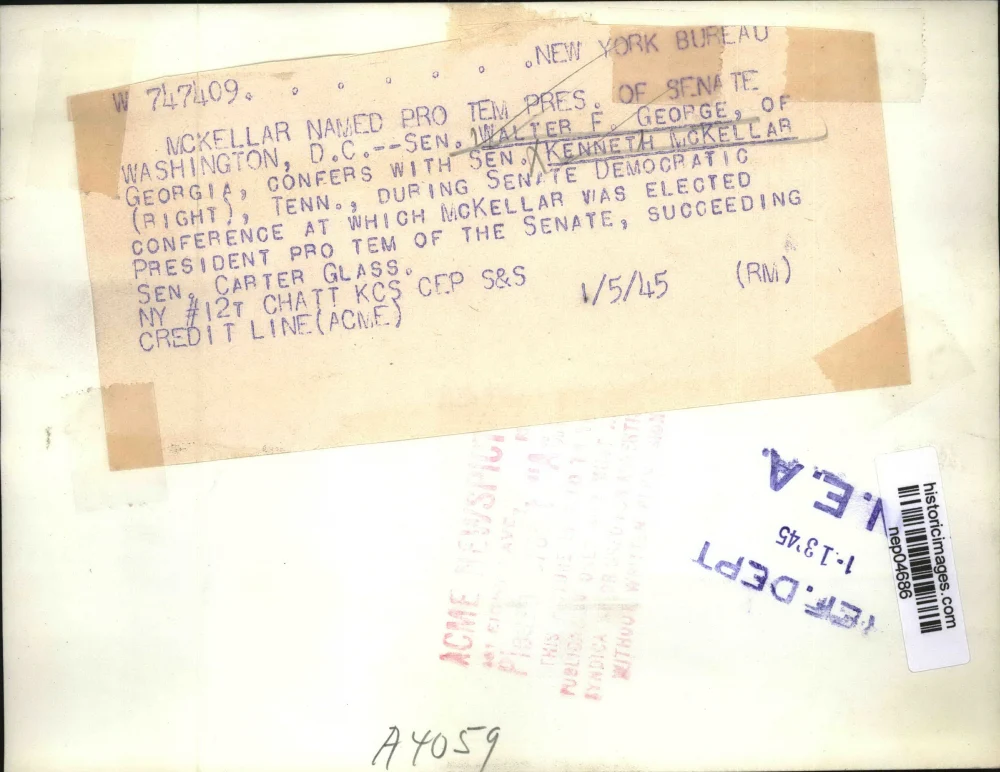 W 747409. . . . . . .NEW YORK BUREAU
MCKELLAR NAMED PRO TEM PRES. OF SENATE
WASHINGTON, D.C.--SEN. WALTER F. GEORGE, OF
GEORGIA, CONFERS WITH SEN. KENNETH MCKELLAR
(RIGHT), TENN., DURING SENATE DEMOCRATIC
CONFERENCE AT WHICH MCKELLAR WAS ELECTED
PRESIDENT PRO TEM OF THE SENATE, SUCCEEDING
SEN. CARTER GLASS.
NY #12T CHATT KCS CEP S&S 1/5/45 (RM)
CREDIT LINE(ACME)
ACME NEWSPIC
AVE.
THIS
SYNDICA
WITHOU
.E.A.
1-13'45
EF. DEPT
historicimages.com
nep04686
A4059